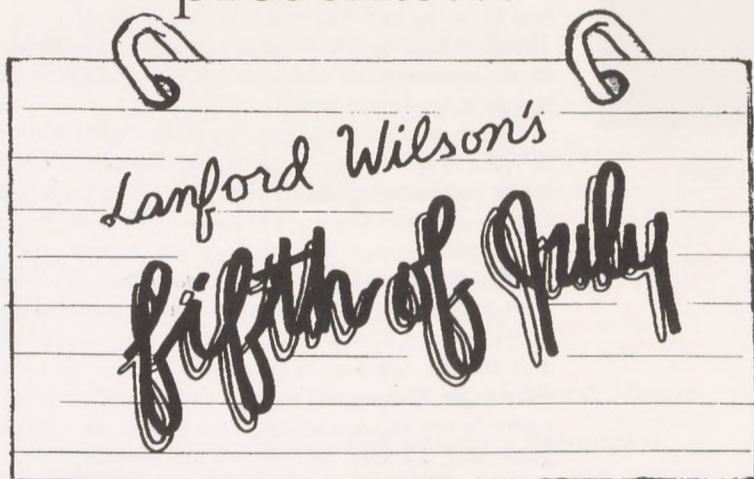 Lanford Wilson's
fifth of July